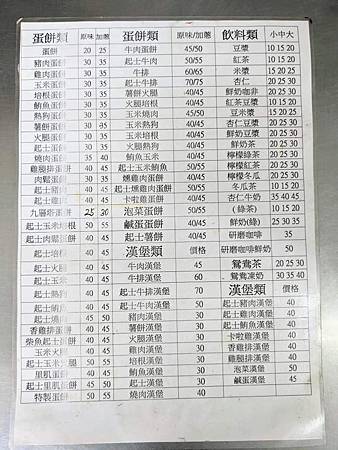 蛋餅類 原味/加蔥 蛋餅類 原味/加蔥 飲料類 小中大
蛋餅 20 25 牛肉蛋餅 45/50 豆漿 10 15 20
豬肉蛋餅 30 35 起士牛肉 50/55 紅茶 10 15 20
雞肉蛋餅 30 35 牛排 60/65 米漿 15 20 25
玉米蛋餅 30 35 起士牛排 70/75 杏仁 20 25 30
培根蛋餅 30 35 薯餅火腿 40/45 鮮奶咖啡 20 25 30
鮪魚蛋餅 30 35 火腿培根 40/45 紅茶豆漿 10 15 20
熱狗蛋餅 30 35 玉米燒肉 40/45 豆米漿 15 20 25
薯餅蛋餅 30 35 玉米熱狗 40/45 杏仁豆漿 20 25 30
火腿蛋餅 30 35 玉米火腿 40/45 鮮奶豆漿 20 25 30
起士蛋餅 30 35 火腿熱狗 40/45 鮮奶茶 20 25 30
燒肉蛋餅 35 40 鮪魚玉米 40/45 檸檬綠茶 20 25 30
雞腿排蛋餅 40 45 起士玉米鮪魚 50/55 檸檬紅茶 20 25 30
肉鬆蛋餅 30 35 燻雞肉蛋餅 40/45 檸檬冬瓜 20 25 30
起士豬肉 40 45 起士燻雞肉蛋餅 50/55 冬瓜茶 10 15 20
起士雞肉 40 45 卡啦雞蛋餅 40/45 杏仁牛奶 35 40 45
九層塔蛋餅 25 30 泡菜蛋餅 50/55 (綠茶) 10 15 20
起士玉米培根 50 55 鹹蛋蛋餅 50/55 鮮奶(綠) 25 30 35
起士肉鬆蛋餅 40 45 起士薯餅 40/45 研磨咖啡 35
起士培根 40 45 漢堡類 價格 研磨咖啡鮮奶 50
起士火腿 40 45 牛肉漢堡 45 鴛鴦茶 20 25 30
起士玉米 40 45 牛排漢堡 60 鴛鴦凍奶 30 35 40
起士熱狗 40 45 起士牛排漢堡 70 漢堡類 價格
起士鮪魚 40 45 起士牛肉漢堡 50 起士豬肉漢堡 40
起士燒肉 45 50 豬肉漢堡 30 起士雞肉漢堡 40
香雞排蛋餅 40 45 薯餅漢堡 30 起士鮪魚漢堡 40
柴魚起士蛋餅 40 45 火腿漢堡 30 卡啦雞漢堡 40
玉米火腿 40 45 雞肉漢堡 30 香雞排漢堡 40
起士玉米火腿 50 55 培根漢堡 30 雞腿排漢堡 40
里肌蛋餅 40 45 鮪魚漢堡 30 泡菜漢堡 50
起士里肌蛋餅 50 55 起士漢堡 30 鹹蛋漢堡 45
特製蛋餅 50 50 燒肉漢堡 40